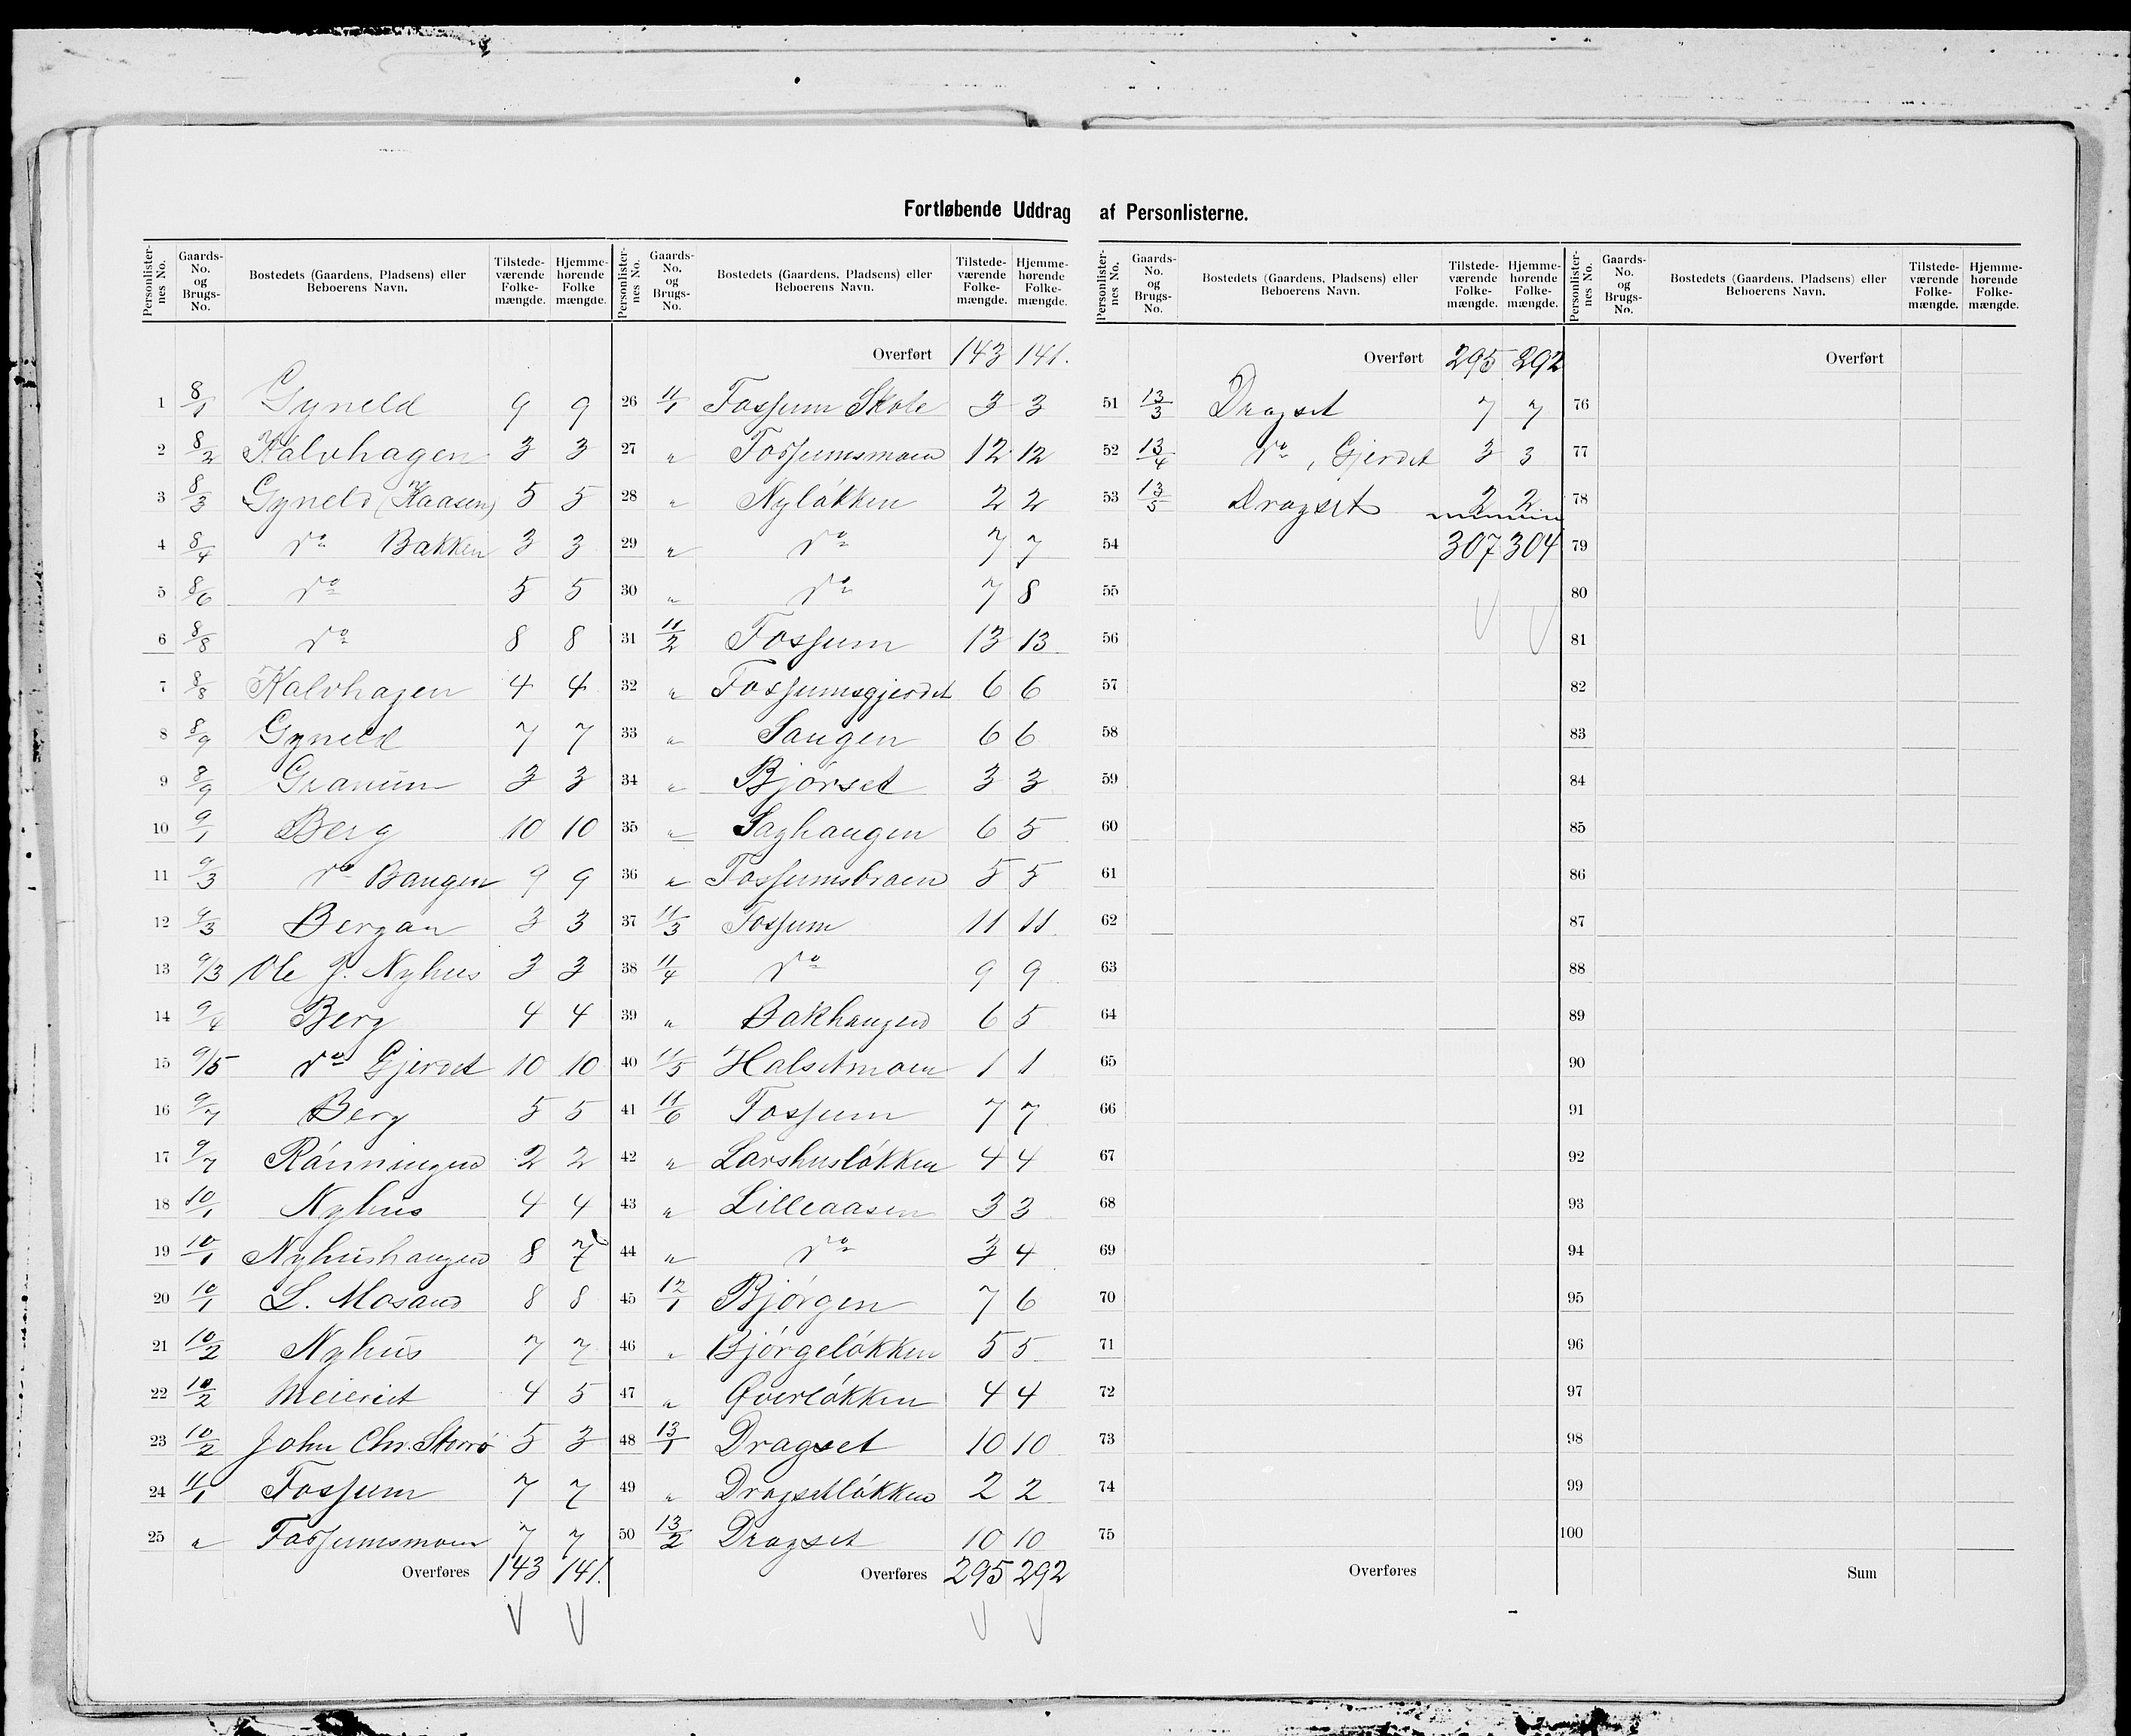 Fortløbende Uddrag af Personlisterne.
Personlisternes No. | Gaards-No. og Brugs-No. | Bostedets (Gaardens, Pladsens) eller Beboerens Navn. | Tilstedeværende Folkemængde. | Hjemmehørende Folke mængde.
1 8/1 Gyneld 9 9
2 8/2 Kalvhagen 3 3
3 8/3 Gyneld (Haasen) 5 5
4 8/4 do Bakken 3 3
5 8/6 do 5 5
6 8/8 do 8 8
7 8/8 Kalvhagen 4 4
8 8/9 Gyneld 7 7
9 8/9 Granum 3 3
10 9/1 Berg 10 10
11 9/3 do Baugen 9 9
12 9/3 Bergan 3 3
13 9/3 Ole J. Nyhus 3 3
14 9/4 Berg 4 4
15 9/5 do Gjerdet 10 10
16 9/7 Berg 5 5
17 9/7 Rønningen 2 2
18 10/1 Nyhus 4 4
19 10/1 Nyhushaugen 8 7
20 10/1 L. Mosand 8 8
21 10/2 Nyhus 7 7
22 10/2 Meieriet 4 5
23 10/2 John Chr. Storrø 5 3
24 11/1 Fossum 7 7
25 " Fossumsmoen 7 7
Overføres 143 141.
Personlisternes No. | Gaards-No. og Brugs-No. | Bostedets (Gaardens, Pladsens) eller Beboerens Navn. | Tilstedeværende Folkemængde. | Hjemmehørende Folkemængde.
Overført 143 141.
26 11/1 Fossum Skole 3 3
27 " Fossumsmoen 12 12
28 " Nyløkken 2 2
29 " do 7 7
30 " do 7 8
31 11/2 Fossum 13 13
32 " Fossumsgjerdet 6 6
33 " Saugen 6 6
34 " Bjørset 3 3
35 " Saghaugen 6 5
36 " Fossumsbraen 5 5
37 11/3 Fossum 11 11
38 11/4 do 9 9
39 " Bakhaugen 6 5
40 11/5 Halsetmoen 1 1
41 11/6 Fossum 7 7
42 " Larshusløkken 4 4
43 " Lilleaasen 3 3
44 " do 3 4
45 12/1 Bjørgen 7 6
46 " Bjørgeløkken 5 5
47 " Øverløkken 4 4
48 13/1 Dragset 10 10
49 " Dragsetløkken 2 2
50 13/2 Dragset 10 10
Overføres 295 292
Personlisternes No. | Gaards-No. og Brugs-No. | Bostedets (Gaardens, Pladsens) eller Beboerens Navn. | Tilstedeværende Folkemængde. | Hjemmehørende Folkemængde.
Overført 295 292
51 13/3 Dragset 7 7
52 13/4 do, Gjerdet 3 3
53 13/5 Dragset 2 2
54 307 304
55
56
57
58
59
60
61
62
63
64
65
66
67
68
69
70
71
72
73
74
75
Overføres
Personlisternes No. | Gaards-No. og Brugs-No. | Bostedets (Gaardens, Pladsens) eller Beboerens Navn. | Tilstedeværende Folkemængde. | Hjemmehørende Folkemængde.
Overført
76
77
78
79
80
81
82
83
84
85
86
87
88
89
90
91
92
93
94
95
96
97
98
99
100
Sum